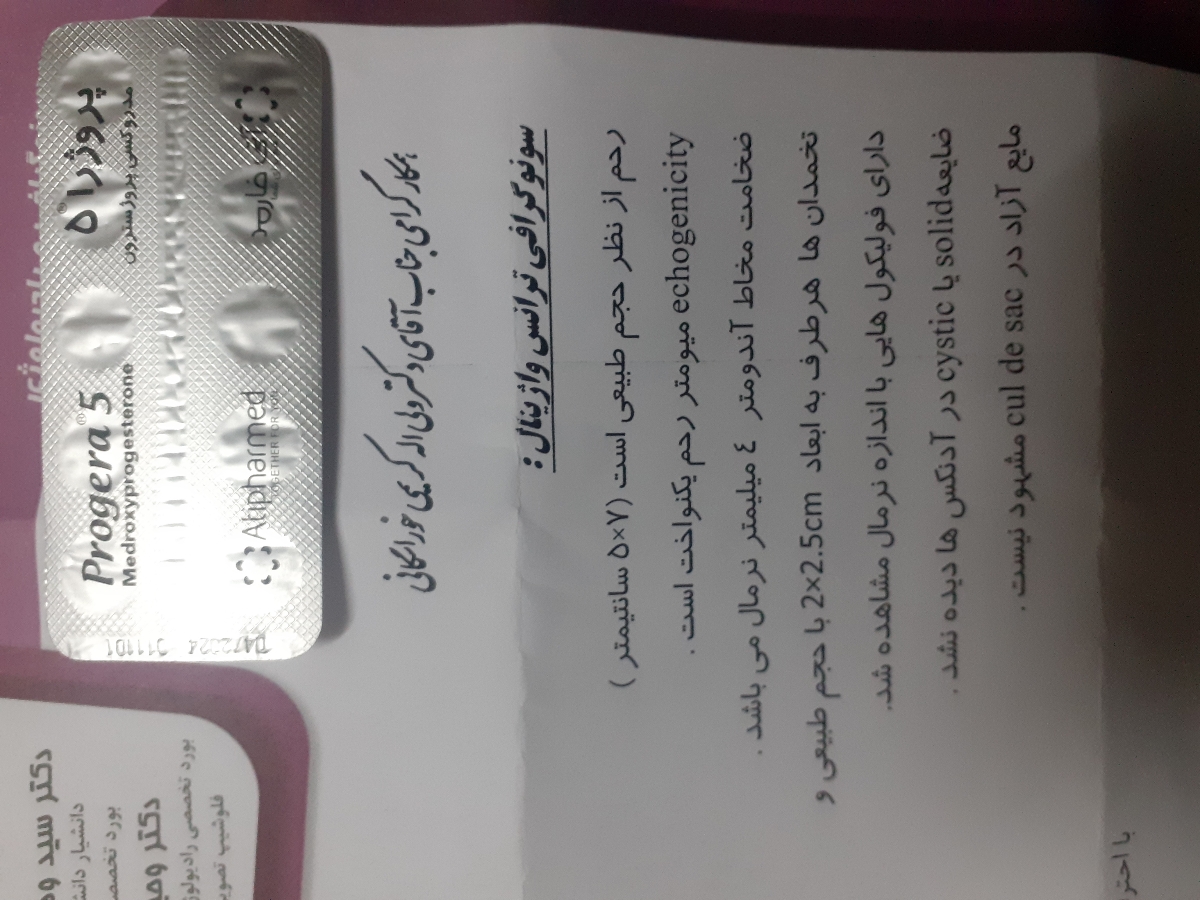 پروژرا® ۵
مدروکسی پروژسترون
Progera® 5
Medroxyprogesterone
آتی فارمد
Atipharmed
TOGETHER FOR YOU
همکار گرامی جناب آقای دکتر ولی اله کریمی خوراسگانی
سونوگرافی ترانس واژینال :
رحم از نظر حجم طبیعی است (۷×۵ سانتیمتر )
echogenicity میومتر رحم یکنواخت است .
ضخامت مخاط آندومتر ٤ میلیمتر نرمال می باشد .
تخمدان ها هرطرف به ابعاد 2×2.5cm با حجم طبیعی و
دارای فولیکول هایی با اندازه نرمال مشاهده شد.
ضایعه solid یا cystic در آدنکس ها دیده نشد .
مایع آزاد در cul de sac مشهود نیست .
با احتر
دکتر سید وح
دانشیار دانش
بورد تخصص
دکتر وحی
بورد تخصصی رادیولوژ
فلوشیپ تصویر